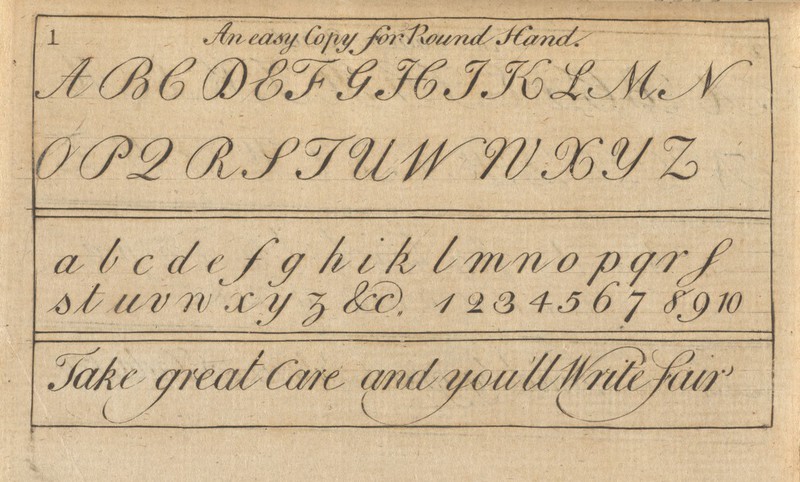 1 An easy Copy for Round Hand.
A B C D E F G H I K L M N
O P Q R S T U W W X Y Z
a b c d e f g h i k l m n o p q r ſ
s t u v w x y z &c. 1 2 3 4 5 6 7 8 9 10
Take great Care and you'll Write fair